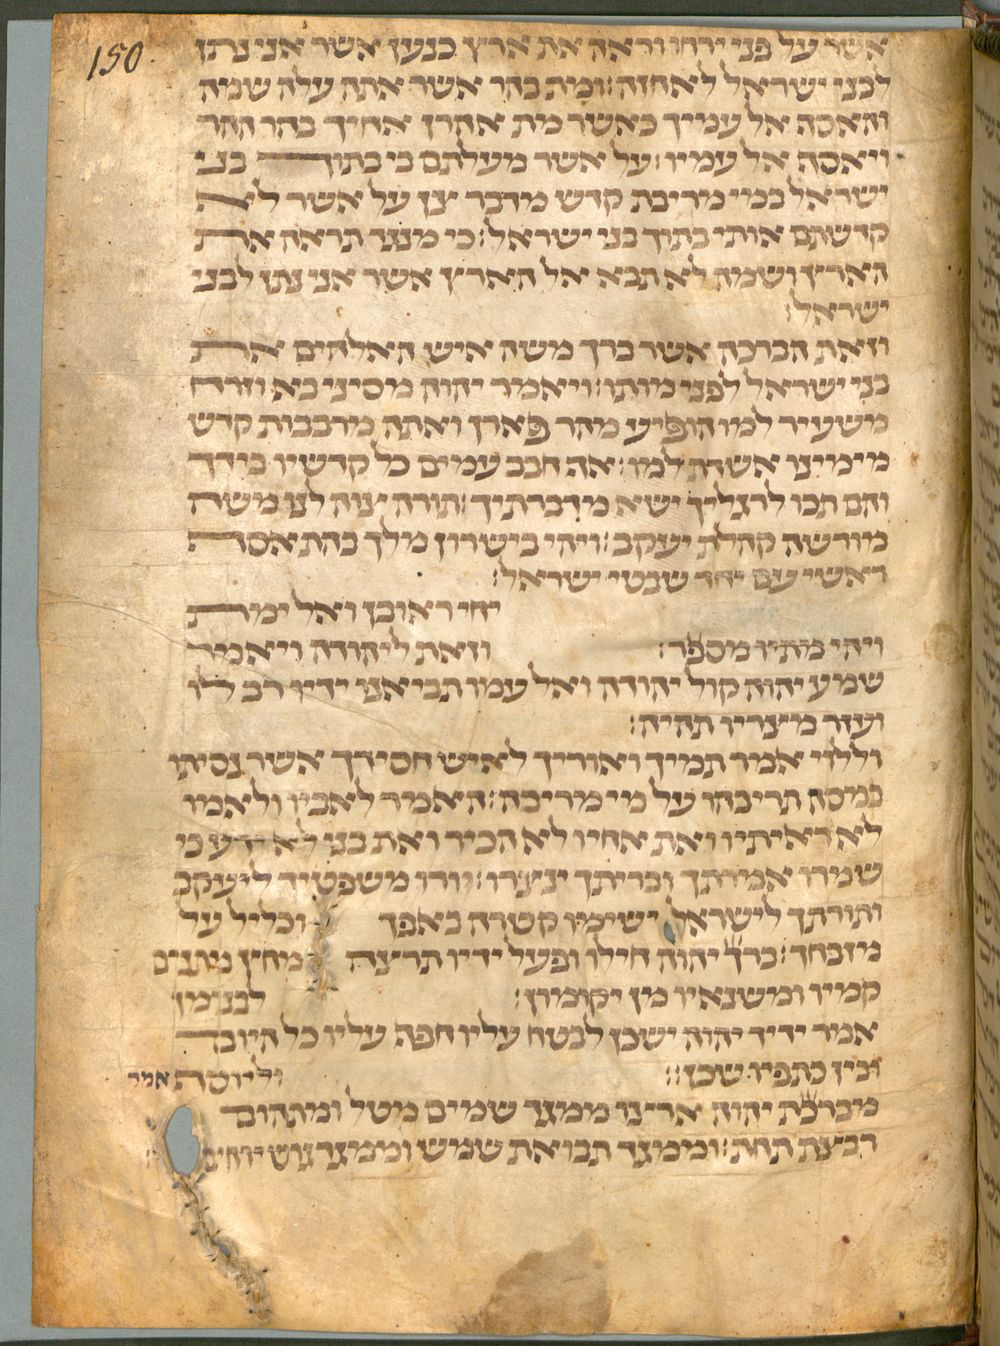 150.
אשר על פני ירחו וראה את ארץ כנען אשר אני נתן
לבני ישראל לאחזה: ומת בהר אשר אתה עלה שמה
והאסף אל עמיך כאשר מת אהרן אחיך בהר ההר
ויאסף אל עמיו: על אשר מעלתם בי בתוך בני
ישראל במי מריבת קדש מדבר צן על אשר לא
קדשתם אותי בתוך בני ישראל: כי מנגד תראה את
הארץ ושמה לא תבא אל הארץ אשר אני נתן לבני
ישראל:
וזאת הברכה אשר ברך משה איש האלהים את
בני ישראל לפני מותו: ויאמר יהוה מסיני בא וזרח
משעיר למו הופיע מהר פארן ואתה מרבבות קדש
מימינו אשדת למו: אף חבב עמים כל קדשיו בידך
והם תכו לרגליך ישא מדברתיך: תורה צוה לנו משה
מורשה קהלת יעקב: ויהי בישרון מלך בהתאסף
ראשי עם יחד שבטי ישראל:
יחי ראובן ואל ימת
ויהי מתיו מספר: וזאת ליהודה ויאמר
שמע יהוה קול יהודה ואל עמו תביאנו ידיו רב לו
ועזר מצריו תהיה:
וללוי אמר תמיך ואוריך לאיש חסידך אשר נסיתו
במסה תריבהו על מי מריבה: האמר לאביו ולאמו
לא ראיתיו ואת אחיו לא הכיר ואת בנו לא ידע כי
שמרו אמרתך ובריתך ינצרו: יורו משפטיך ליעקב
ותורתך לישראל ישימו קטרה באפך וכליל על
מזבחך: ברך יהוה חילו ופעל ידיו תרצה מחץ מתנים
קמיו ומשנאיו מן יקומון: לבנימן
אמר ידיד יהוה ישכן לבטח עליו חפף עליו כל היום
ובין כתפיו שכן: וליוסף אמר
מברכת יהוה ארצו ממגד שמים מטל ומתהום
רבצת תחת: וממגד תבואת שמש וממגד גרש ירחים